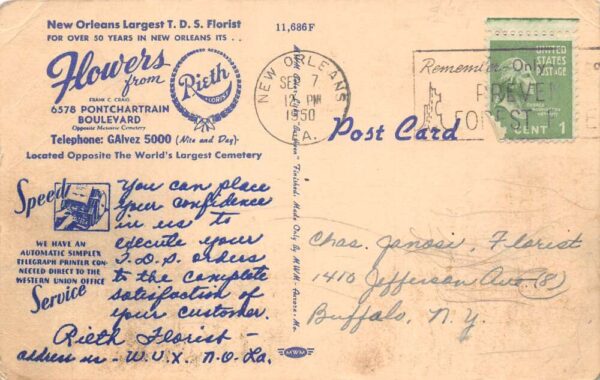 New Orleans Largest T. D. S. Florist
FOR OVER 50 YEARS IN NEW ORLEANS ITS . .
Flowers
from
Rieth
FLORIST
FRANK C. CRAIG
6578 PONTCHARTRAIN
BOULEVARD
Opposite Masonic Cemetery
Telephone: GAlvez 5000 (Nite and Day)
Located Opposite The World's Largest Cemetery
Speed
WE HAVE AN
AUTOMATIC SIMPLEX
TELEGRAPH PRINTER CON-
NECTED DIRECT TO THE
WESTERN UNION OFFICE
Service
You can place
your confidence
in us to
execute your
T.D.S. orders
to the complete
satisfaction of
your customer.
Rieth Florist -
address us - W.U.X. N.O. La.
11,686F
Finished. Made Only By MWM - Aurora, Mo.
MWM
NEW ORLEANS
SEP 7
12 PM
1950
LA.
Remember - Only
PREVE
FOREST F
UNITED
STATES
POSTAGE
CENT 1
Post Card
Chas. Janosi, Florist
1410 Jefferson Ave. (8)
Buffalo, N.Y.